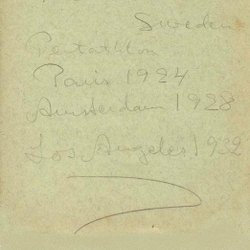 Sweden
Pentathlon
Paris 1924
Amsterdam 1928
Los Angeles 1932